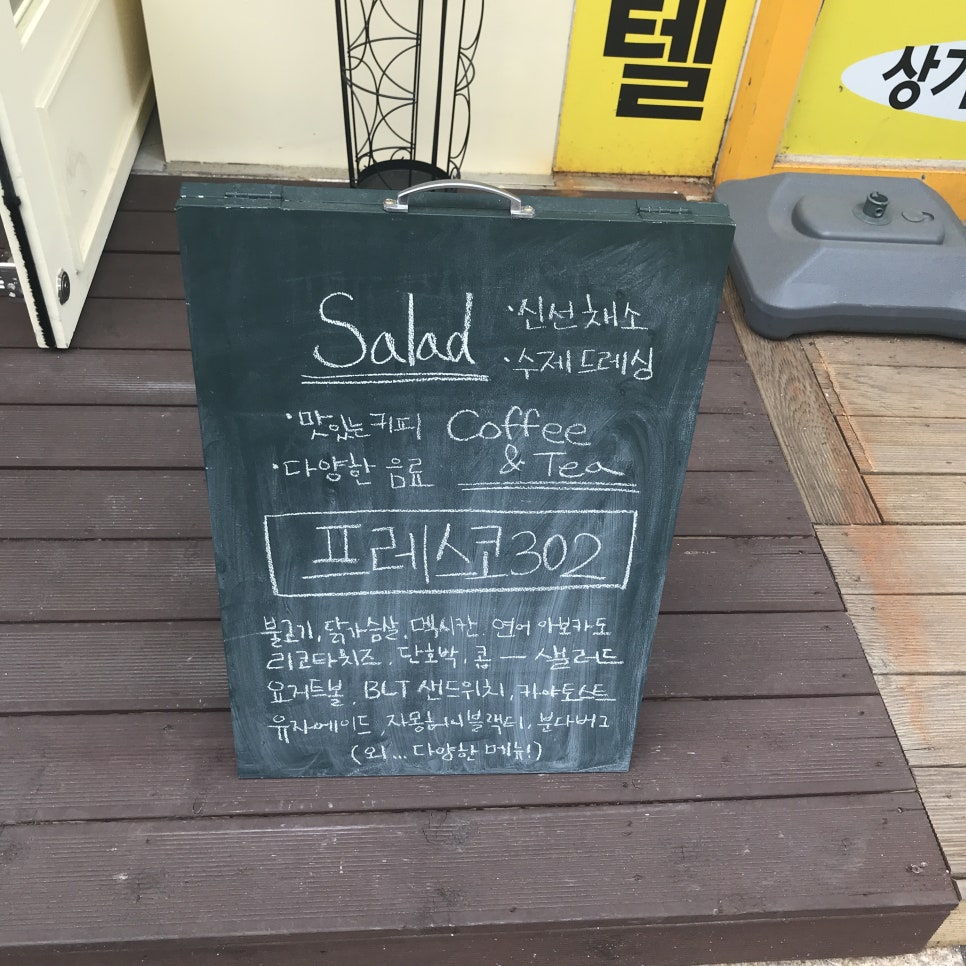 텔
상가
Salad
·신선 채소
·수제 드레싱
·맛있는 커피
·다양한 음료
Coffee
& Tea
프레스코302
불고기, 닭가슴살, 멕시칸, 연어 아보카도
리코타치즈, 단호박, 콥 ー 샐러드
요거트볼, BLT 샌드위치, 카야토스트
유자에이드, 자몽허니블랙티, 분다버그
(외... 다양한 메뉴!)